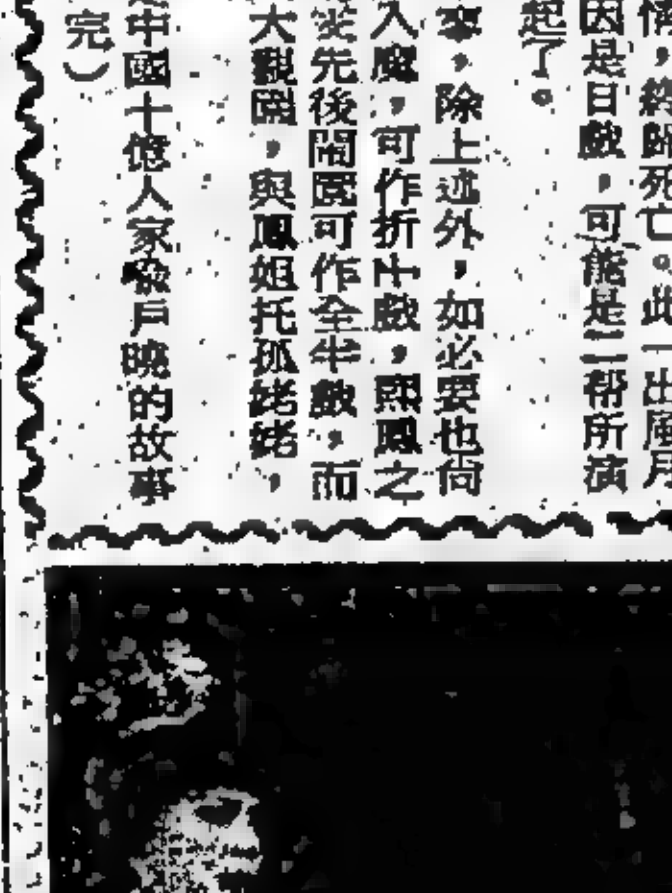 情，終歸死亡。此一出風月
因是日戲，可能是二帮所演
起了。
來，除上述外，如必要也尚
入魔，可作折中戲，熙鳳之
先後鬧園可作全半戲，而
大觀園，與鳳姐托孤姥姥，
中國十億人家喻戶曉的故事
完）